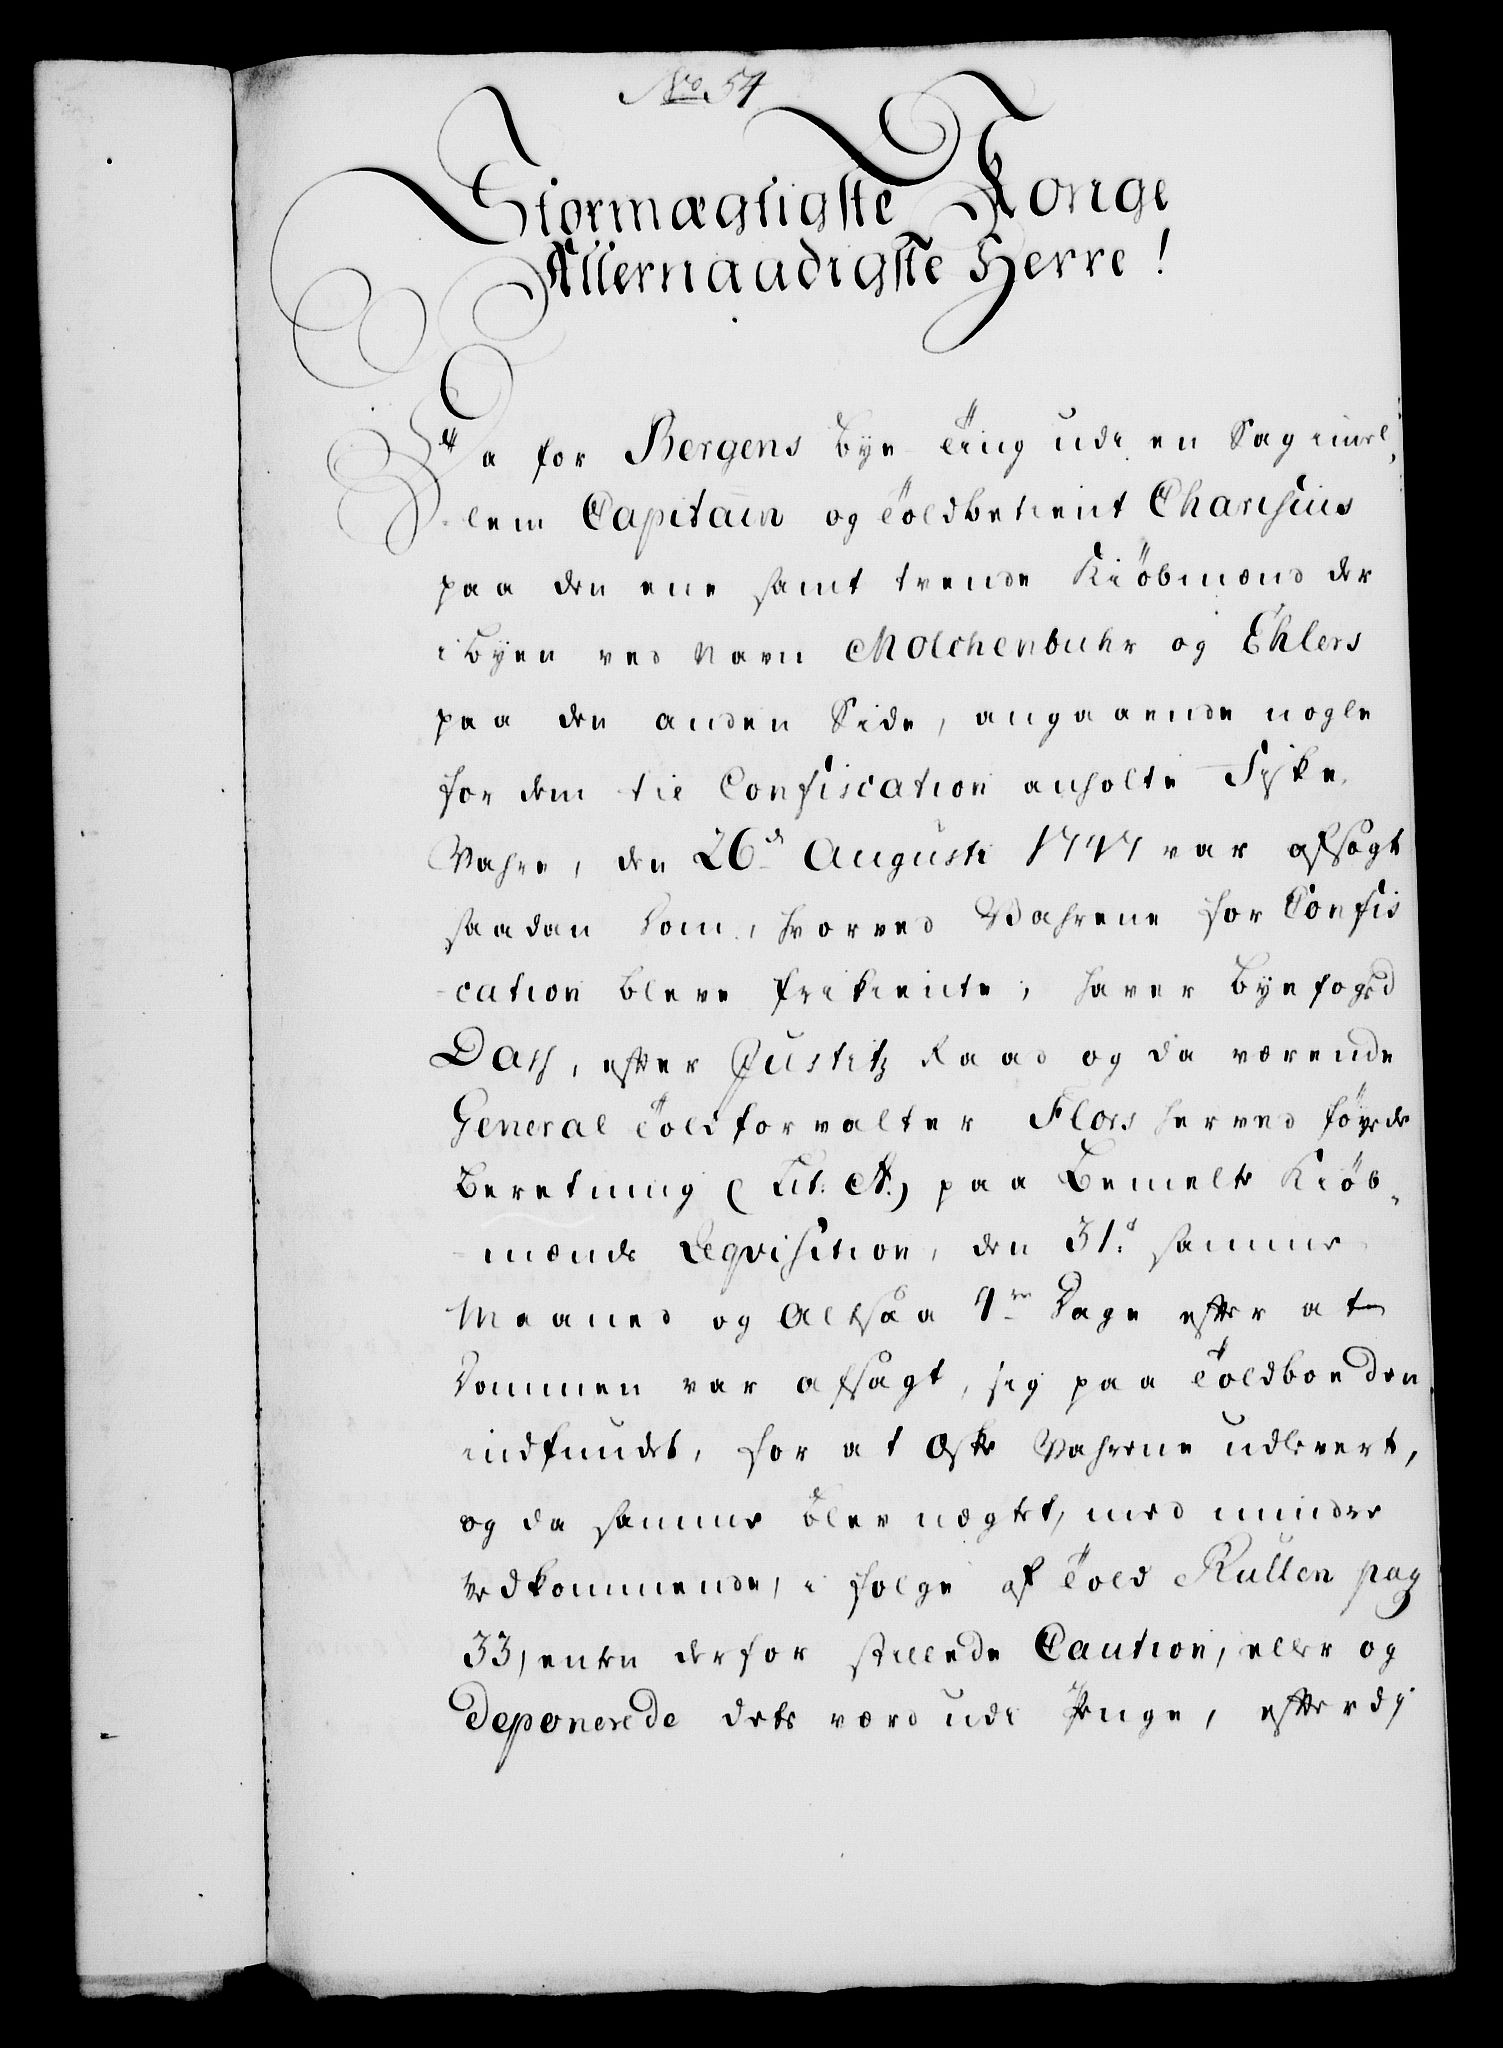 No. 54
Stormægtigste Konge
Allernaadigste Herre!
Da for Bergens Bye Ting udi en Sag imel,
lem Capitain og Toldbetient Charisius
paa den ene samt tvende Kiöbmænd der
i Byen ved Navn Molchenbuhr og Ehlers
paa den anden Side, angaaende nogle
for dem til Confiscation anholte Syke
Vahre, den 26de Augusti 1747 var afsagt
saadan Dom, hvorved Vahrene for Confis
-cation bleve frikiente, haver Byefoged
Dass, efter Justitz Raad og da værende
General Toldforvalter Flors herved föyede
Beretning (Lit: A.) paa Bemelte Kiöb,
-mænds Reqvisition, den 31d. samme
Maaned og altsaa 4re Dage efter at
Dommen var afsagt, sig paa Toldboeden
indfundet, for at æske Vahrene udleveret,
og da samme blev nægtet, med mindre
Vedkommende, i folge af Told Rullen pag
33, enten derfor stillede Caution, eller og
deponerede dets værd udi Penge, efterdj